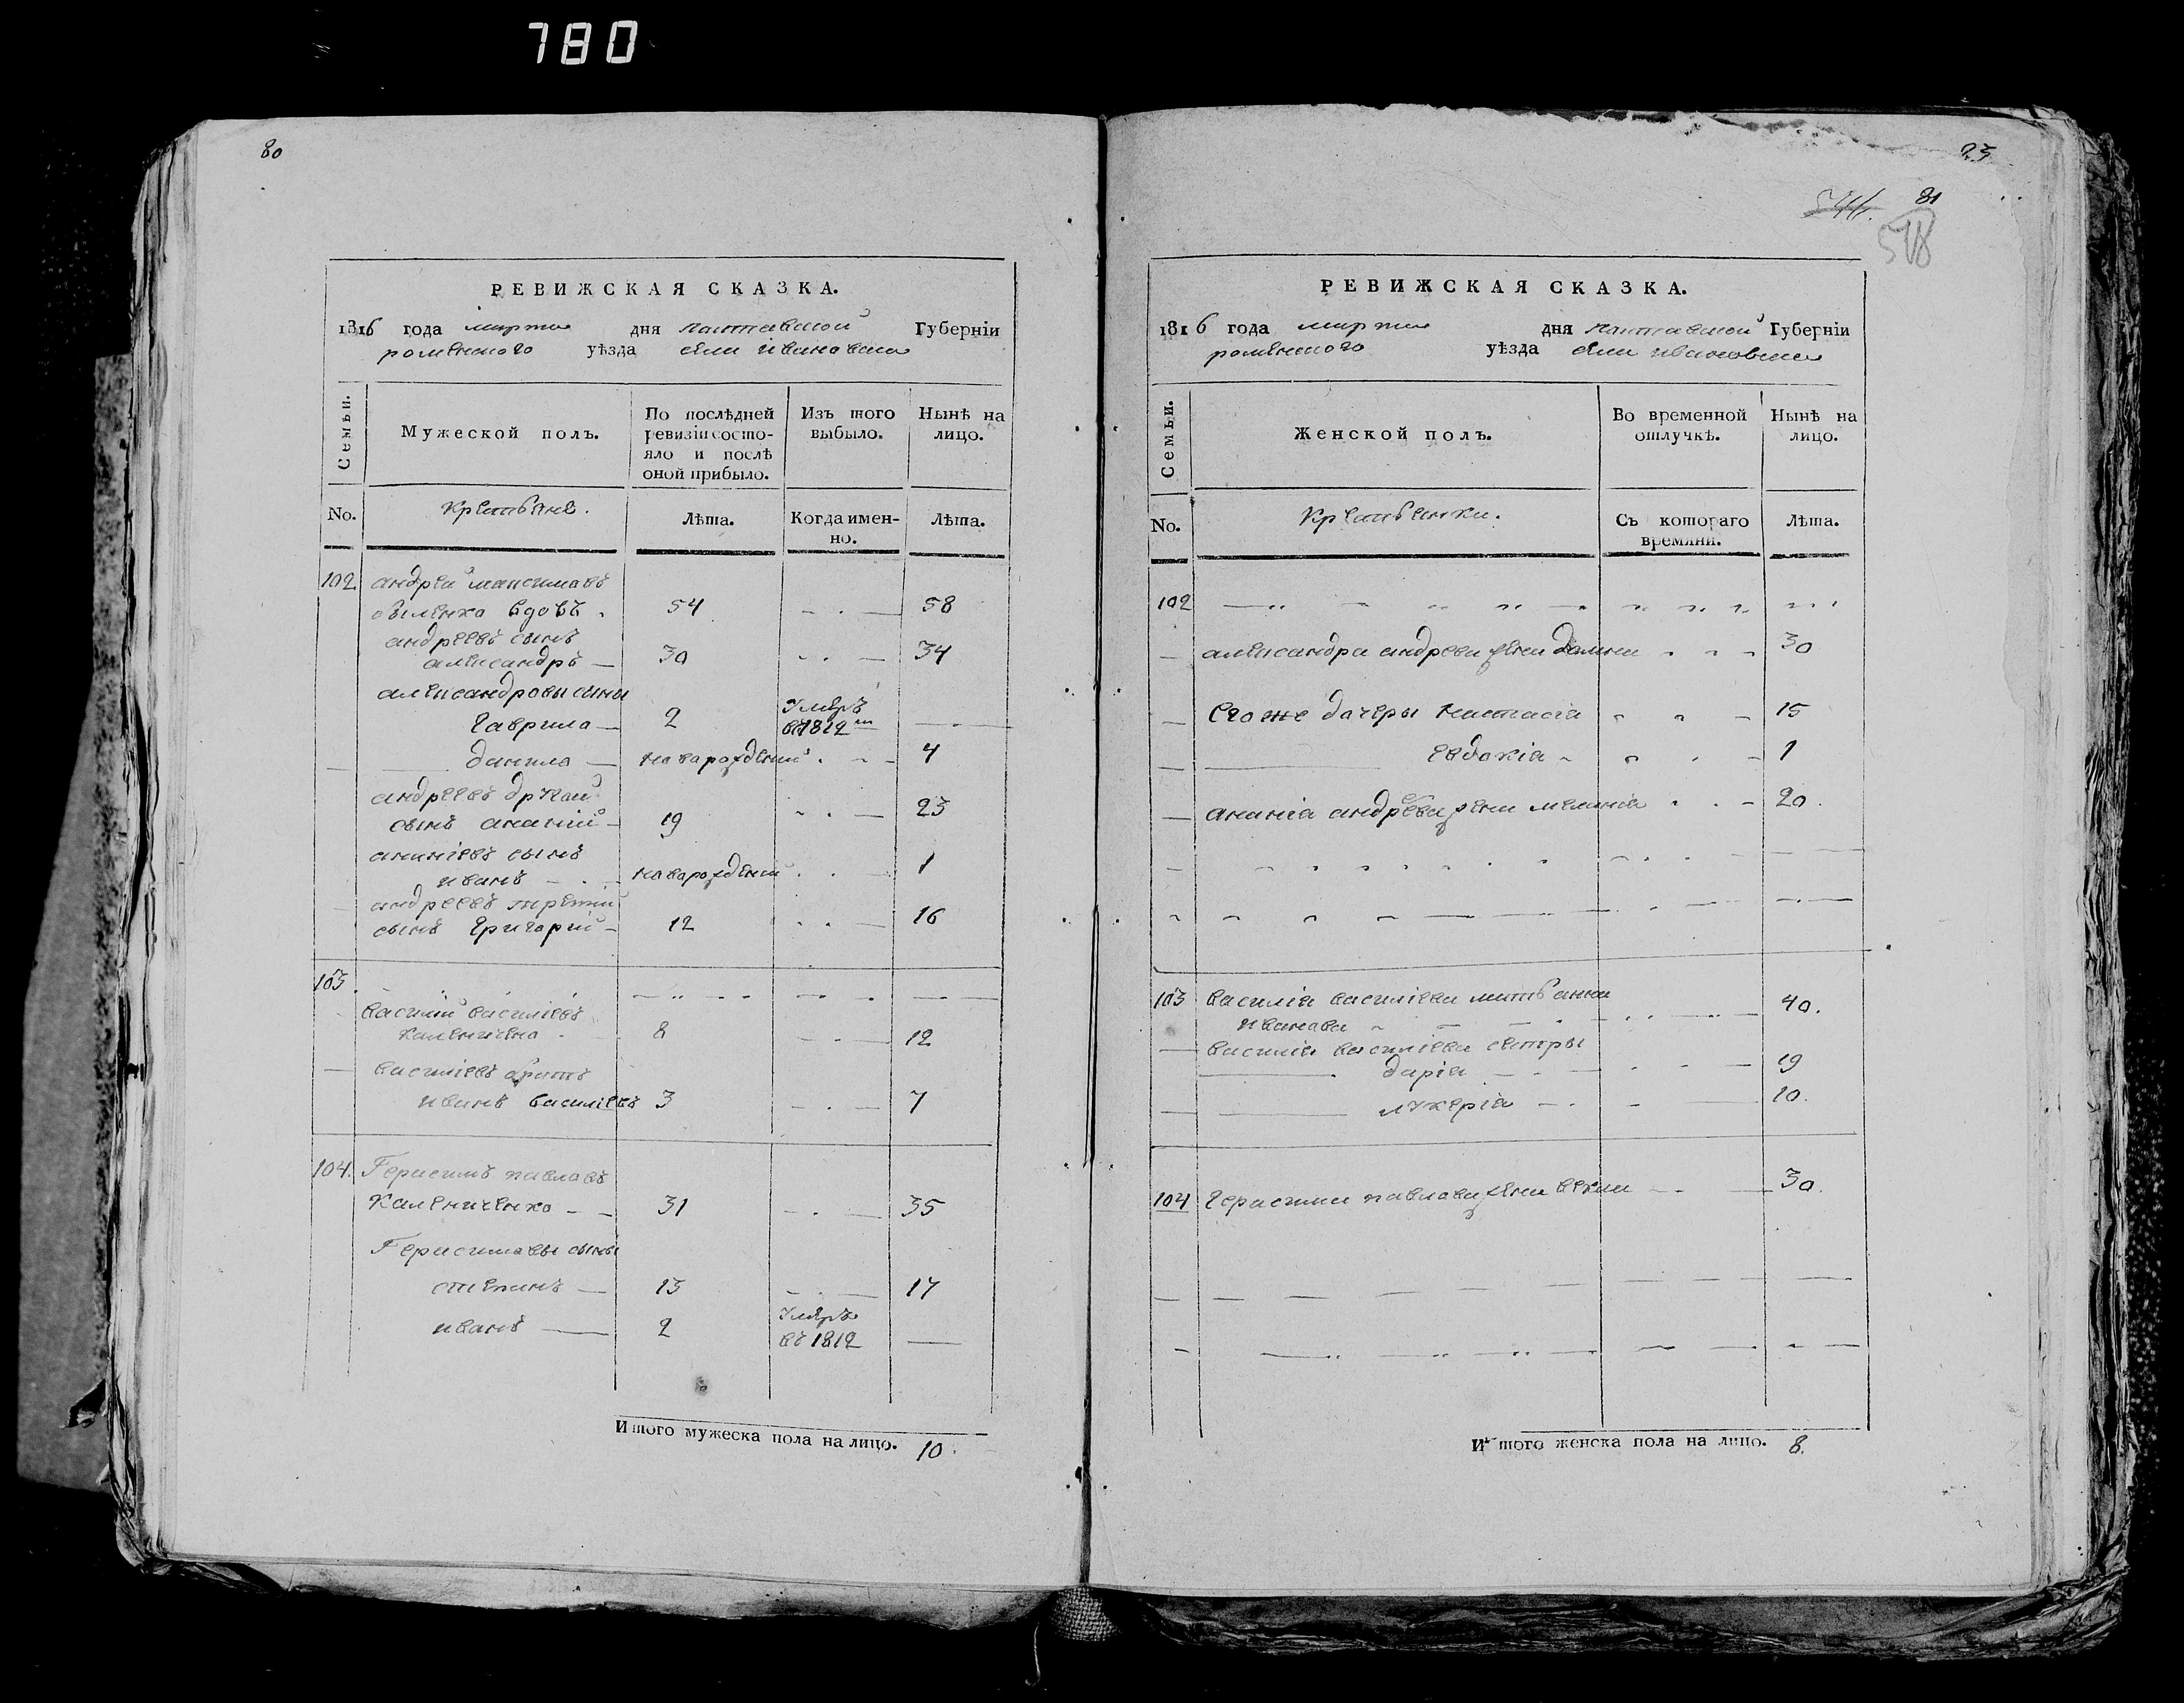 780
80
РЕВИЖСКАЯ СКАЗКА.
1816 года марта дня полтавской Губерніи
роменского уѣзда села ивановки
Семьи.
Мужеской полъ.
По послѣдней ревизіи состояло и послѣ оной прибыло.
Изъ того выбыло.
Нынѣ на лицо.
No.
Крестьяне.
Лѣта.
Когда именно.
Лѣта.
102 андрей максимовъ
вдовъ 54 58
андреевъ сынъ
александръ 30 34
александровы сыны
гаврила 2 умеръ в 1812м
данила новарождений 4
андреевъ другой
сынъ ананий 19 23
ананіевъ сынъ
иванъ новарождений 1
андреевъ третий
сынъ григорий 12 16
103
василий василіевъ
каленичено 8 12
василіевъ братъ
иванъ василіевъ 3 7
104. Герасимъ павловъ
Каленниченко 31 35
Герасимовы сыны
степанъ 13 17
иванъ 2 умеръ въ 1812
Итого мужеска пола на лицо. 10.
23
81
518
РЕВИЖСКАЯ СКАЗКА.
1816 года марта дня полтавской Губерніи
роменского уѣзда села ивановки
Семьи.
Женской полъ.
Во временной отлучкѣ.
Нынѣ на лицо.
No.
Крестьянки.
Съ котораго времяни.
Лѣта.
102
александра андреева жена 30
Его же дочеры настасіа 15
евдокіа 1
ананіа андреева жена меланіа 20.
103 василіа василіева
иванова 40.
василіа василіева сестры
даріа 19
лукеріа 10.
104 герасима павлова жена 30.
Итого женска пола на лицо. 8.